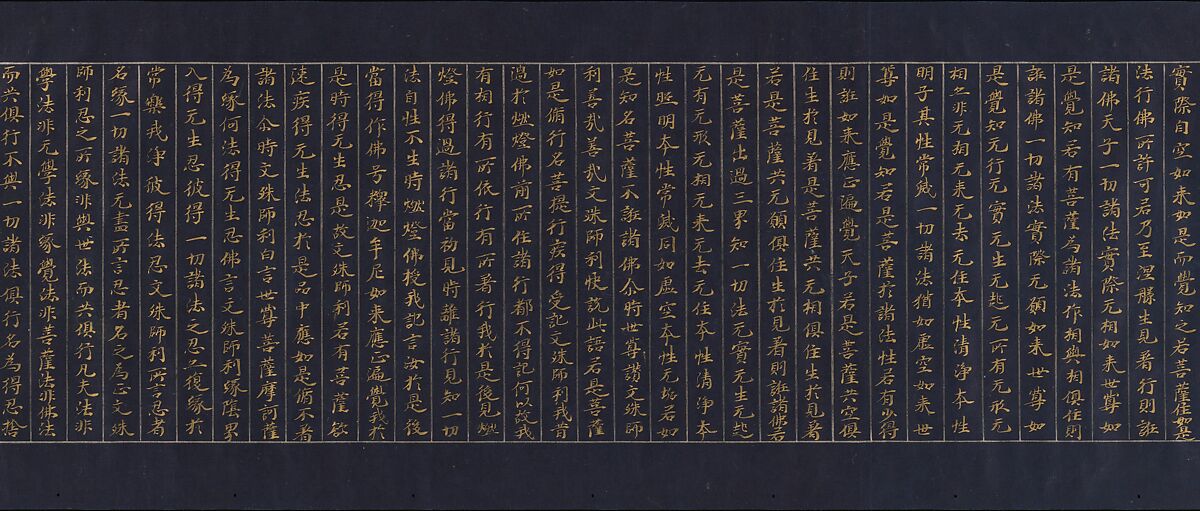 實際自空如来如是而覺知之若菩薩住如是
法行佛所許可若乃至涅槃生見著行則誑
諸佛天子一切諸法實際无相如来世尊如
是覺知若有菩薩為諸法作相與相俱住則
誑諸佛一切諸法實際无願如来世尊如
是覺知无行元實无生无起无所有无取无
相之非元相无来无去无住本性清淨本性
明子其性常寂一切諸法猶如虛空如来世
尊如是覺知若是菩薩於諸法性若有少得
則誑如来應正遍覺天子若是菩薩共空俱
住生於見著是菩薩共无相俱住生於見著
若是菩薩共无願俱住生於見著則誑諸佛若
是菩薩出過三界知一切法元實无生无起
元有无形元相无来元去无住本性清淨本
性照明本性常寂同如虛空本性无垢若如
是知名菩薩不誑諸佛尒時世尊讚文殊師
利善哉善哉文殊師利快說此語若是菩薩
如是脩行名菩提行疾得受記文殊師利我昔
過於燃燈佛前所住諸行都不得記何以故我
有相行有所依行有所著行我於是後見燃
燈佛得過諸行當初見時離諸行見知一切
法自性不生時燃燈佛授我記言汝於是後
當得作佛号釋迦牟尼如来應正遍覺我於
是時得无生忍是故文殊師利若有菩薩欲
速疾得元生法忍於是品中應如是脩不著
諸法尒時文殊師利白言世尊菩薩摩訶薩
為緣何法得元生忍佛言文殊師利緣陰界
入得元生忍彼得一切諸法之忍不復緣於
常樂我淨彼得法忍文殊師利所言忍者
名緣一切諸法元盡所言忍者名之為正文殊
師利忍之所緣非與世法而共俱行凡夫法非
學法非元學法非緣覺法非菩薩法非佛法
而共俱行不與一切諸法俱行名為得忍捨